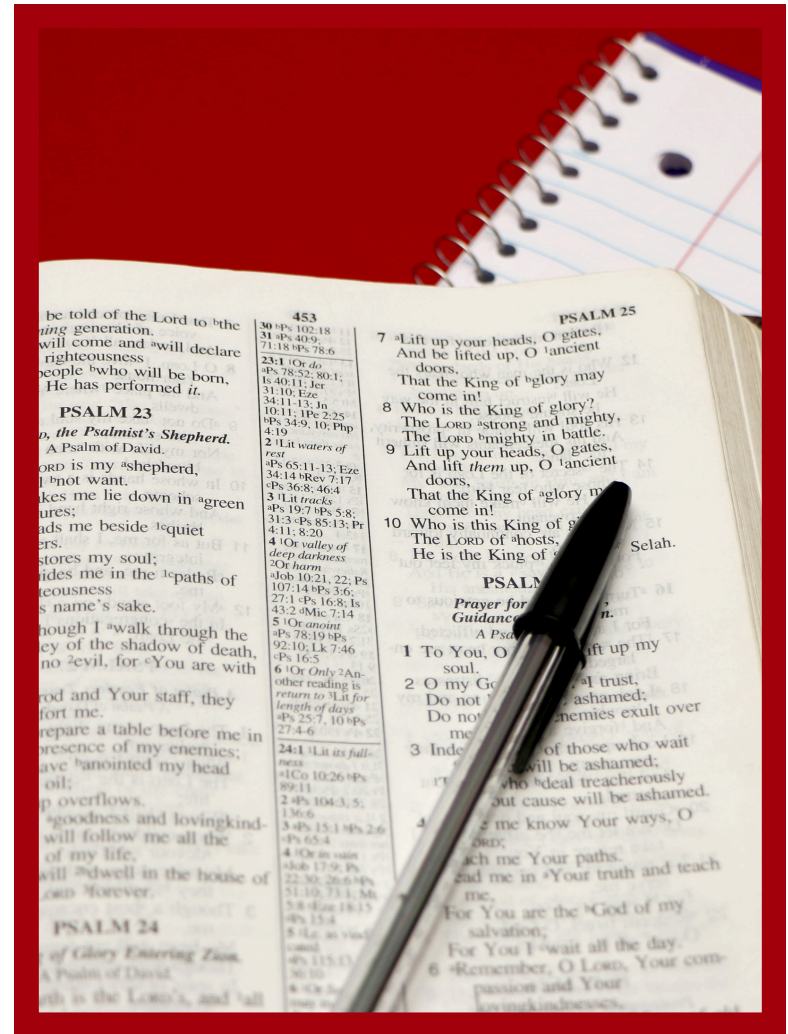 453
PSALM 25
be told of the Lord to ᵇthe
ning generation.
will come and ᵃwill declare
righteousness
people ᵇwho will be born,
He has performed it.
PSALM 23
, the Psalmist's Shepherd.
A Psalm of David.
ORD is my ᵃshepherd,
ᵇnot want.
kes me lie down in ᵃgreen
ures;
ads me beside ¹ᶜquiet
ers.
stores my soul;
ides me in the ¹ᶜpaths of
teousness
s name's sake.
hough I ᵃwalk through the
ey of the shadow of death,
no ²evil, for ᶜYou are with
rod and Your staff, they
fort me.
repare a table before me in
presence of my enemies;
ave ᵇanointed my head
oil;
p overflows.
ᵃgoodness and lovingkind-
will follow me all the
of my life,
will dwell in the house of
forever.
PSALM 24
of Glory Entering Zion.
A Psalm of David.
rth is the LORD's, and all
30 ᵇPs 102:18
31 ᵃPs 40:9;
71:18 ᵇPs 78:6
23:1 ¹Or do
ᵃPs 78:52; 80:1;
Is 40:11; Jer
31:10; Eze
34:11-13; Jn
10:11; 1Pe 2:25
ᵇPs 34:9, 10; Php
4:19
2 ¹Lit waters of
rest
ᵃPs 65:11-13; Eze
34:14 ᵇRev 7:17
ᶜPs 36:8; 46:4
3 ¹Lit tracks
ᵃPs 19:7 ᵇPs 5:8;
31:3 ᶜPs 85:13; Pr
4:11; 8:20
4 ¹Or valley of
deep darkness
²Or harm
ᵃJob 10:21, 22; Ps
107:14 ᵇPs 3:6;
27:1 ᶜPs 16:8; Is
43:2 ᵈMic 7:14
5 ¹Or anoint
ᵃPs 78:19 ᵇPs
92:10; Lk 7:46
ᶜPs 16:5
6 ¹Or Only ²An-
other reading is
return to ³Lit for
length of days
ᵃPs 25:7, 10 ᵇPs
27:4-6
24:1 ¹Lit its full-
ness
ᵃ1Co 10:26 ᵇPs
89:11
2 ᵃPs 104:3, 5;
136:6
3 ᵃPs 15:1 ᵇPs 2:6
ᶜPs 65:4
4 ¹Or in vain
ᵃJob 17:9; Ps
22:30; 26:6 ᵇPs
51:10; 73:1; Mt
5:8 ᶜEze 18:15
ᵈPs 15:4
7 ᵃLift up your heads, O gates,
And be lifted up, O ¹ancient
doors,
That the King of ᵇglory may
come in!
8 Who is the King of glory?
The LORD ᵃstrong and mighty,
The LORD ᵇmighty in battle.
9 Lift up your heads, O gates,
And lift them up, O ¹ancient
doors,
That the King of ᵃglory m
come in!
10 Who is this King of g
The LORD of ᵃhosts,
He is the King of Selah.
PSALM
Prayer for
Guidance n.
A Psa
1 To You, O ift up my
soul.
2 O my Go ᵃI trust,
Do not ashamed;
Do no enemies exult over
me
3 Inde of those who wait
will be ashamed;
who ᵇdeal treacherously
out cause will be ashamed.
me know Your ways, O
ORD;
ach me Your paths.
ead me in ᵃYour truth and teach
me,
For You are the ᵇGod of my
salvation;
For You I wait all the day.
6 ᵃRemember, O LORD, Your com-
passion and Your
lovingkindnesses,